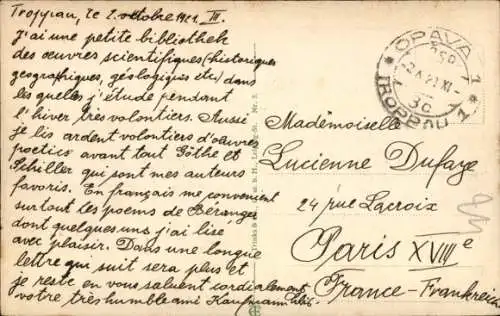 Troppau, le 2. octobre 1921. III.
J'ai une petite bibliothek
des œuvres scientifiques (historiques
geographiques, géologiques etc) dans
les quelles j'étude pendant
l'hiver très volontiers. Aussi
je lis ardent volontiers d'œuvres
poetics avant tout Göthe et
Schiller qui sont mes auteurs
favoris. En français me convenient
surtout les poems de Béranger
dont quelques uns j'ai lisé
avec plaisir. Dans une longue
lettre qui suit sera plus et
je reste en vous saluent cordialement
votre très humble ami Kaufmann
OPAVA 1
TROPPAU 1
Mademoiselle
Lucienne Dufaye
24 rue Lacroix
Paris XVIIIe
France - Frankreich